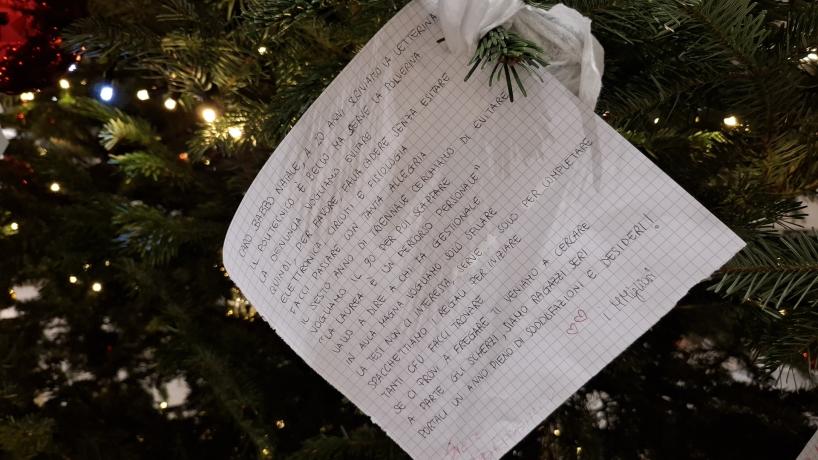 CARO BABBO NATALE, A 20 ANNI SCRIVIAMO LA LETTERINA
IL POLITECNICO È BELLO MA SERVE LA POLVERINA
LA DENUNCIA VOGLIAMO EVITARE
QUINDI, PER FAVORE FALLA CADERE SENZA ESITARE
ELETTRONICA CIRCUITI E FISIOLOGIA
FACCI PASSARE CON TANTA ALLEGRIA
IL SESTO ANNO DI TRIENNALE CERCHIAMO DI EVITARE
VOGLIAMO IL 90 PER POI SCAPPARE
"LA LAUREA È UN PERCORSO PERSONALE"
VALLO A DIRE A CHI FA GESTIONALE
IN AULA MAGNA VOGLIAMO SOLO SFILARE
LA TESI NON CI INTERESSA, SERVE SOLO PER COMPLETARE
SPACCHETTIAMO I REGALI PER INIZIARE
TANTI CFU FACCI TROVARE
SE CI PROVI A FREGARE TI VENIAMO A CERCARE
A PARTE GLI SCHERZI, SIAMO RAGAZZI SERI
PORTACI UN ANNO PIENO DI SODDISFAZIONI E DESIDERI!